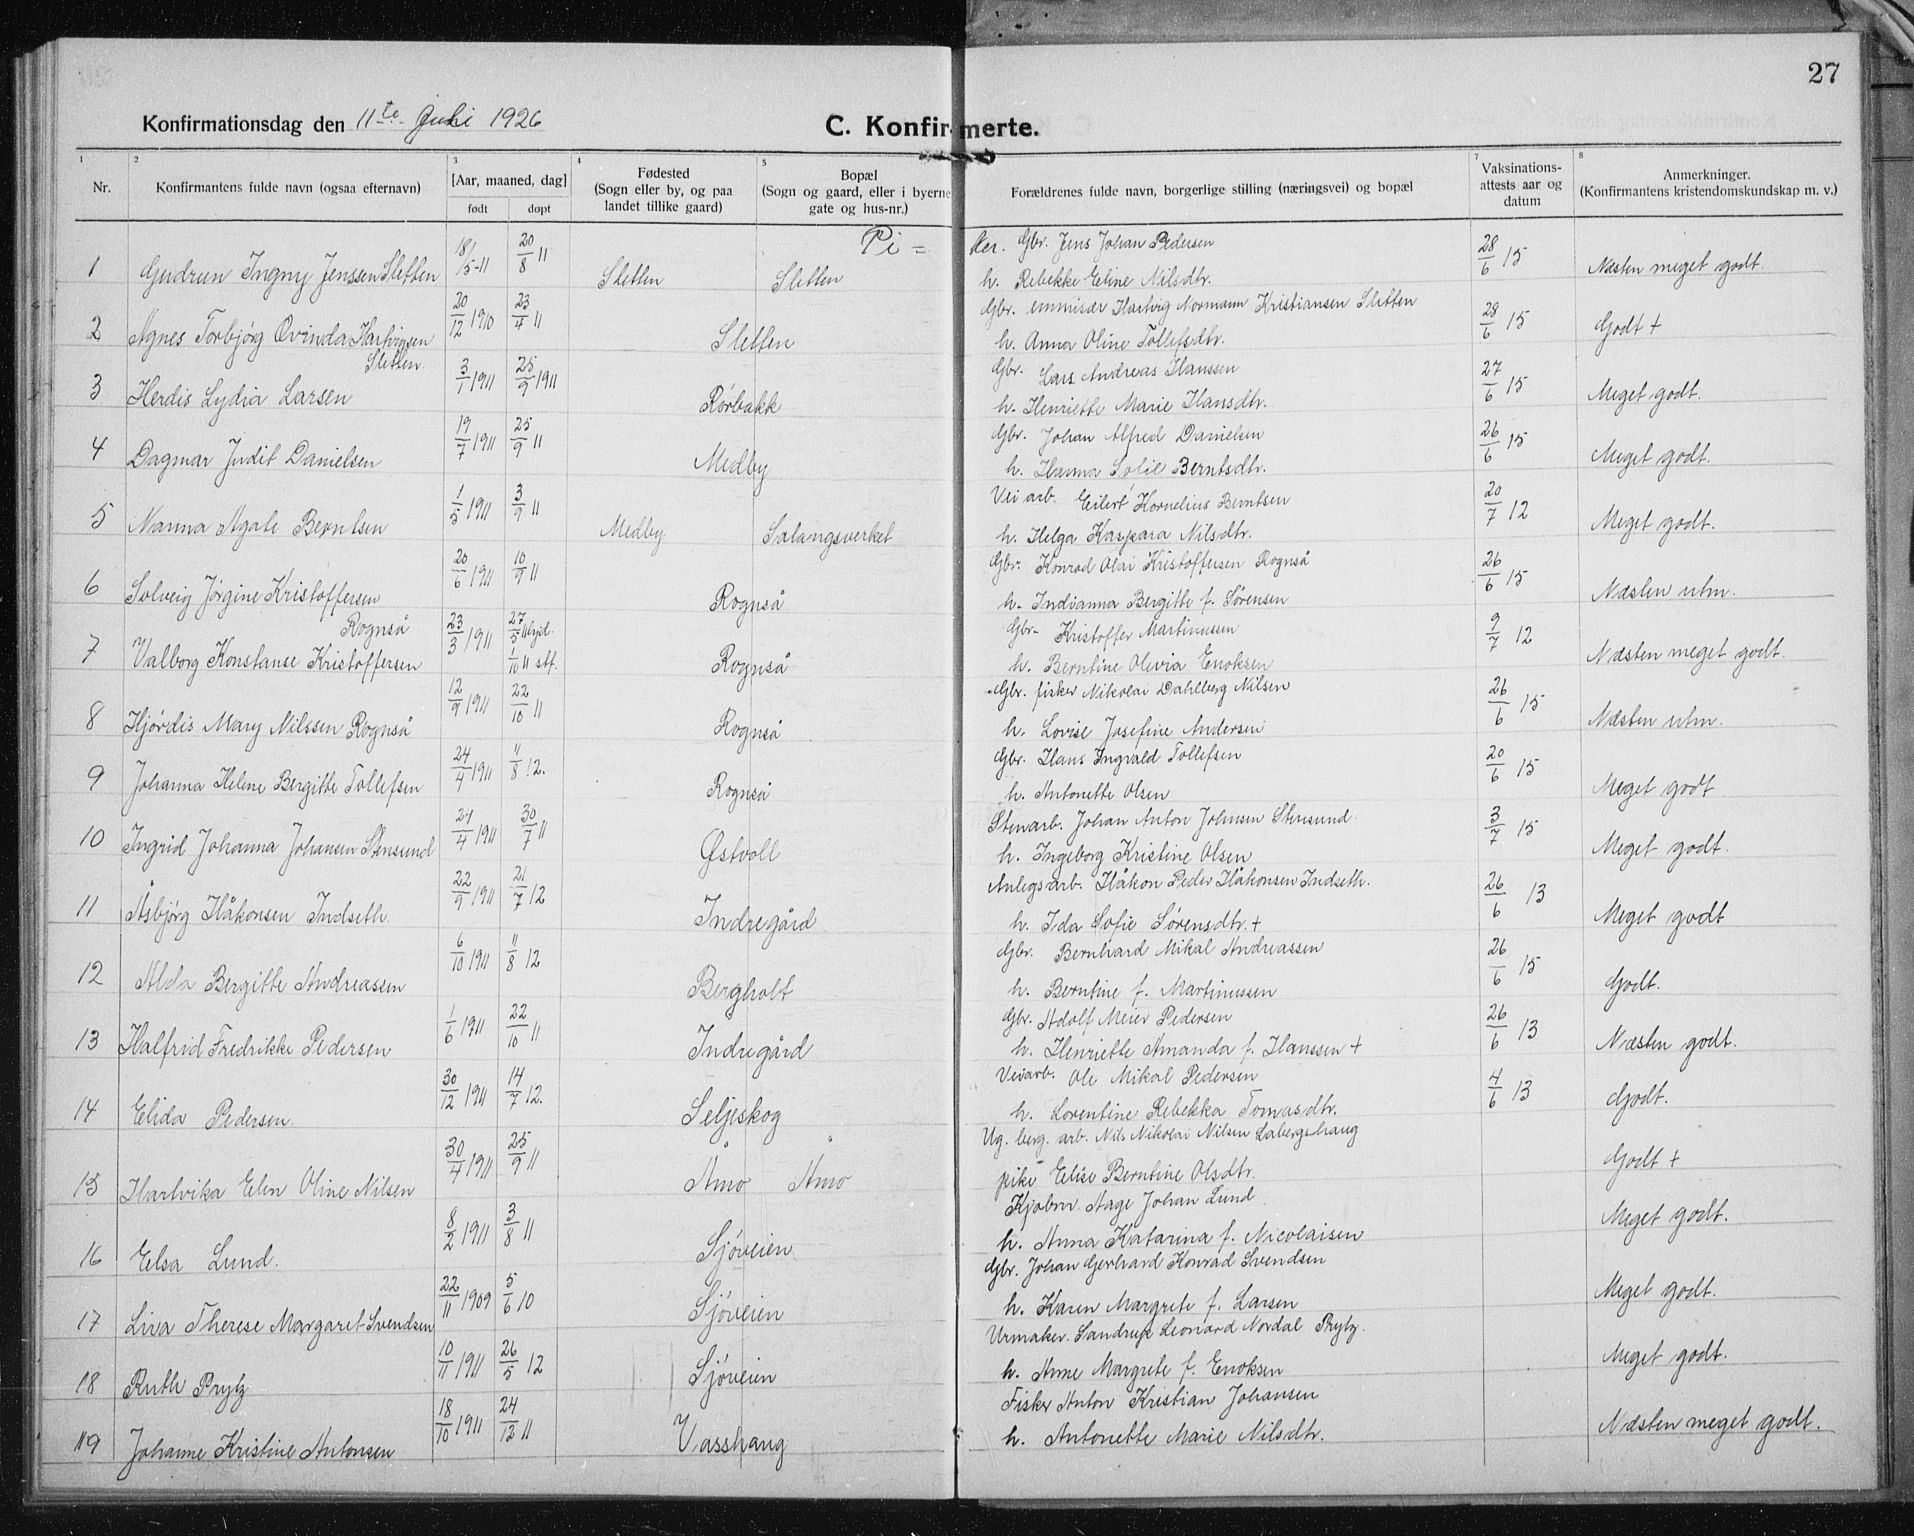 27
Konfirmationsdag den 11te Juli 1926
C. Konfirmerte.
1 2 3 4 5 7 8
Nr.
Konfirmantens fulde navn (ogsaa efternavn)
[Aar, maaned, dag]
født døpt
Fødested
(Sogn eller by, og paa
landet tillike gaard)
Bopæl
(Sogn og gaard, eller i byerne
gate og hus-nr.)
Forældrenes fulde navn, borgerlige stilling (næringsvei) og bopæl
Vaksinations-
attests aar og
datum
Anmerkninger.
(Konfirmantens kristendomskundskap m. v.)
Pi = ker.
18/5-11 20/8 11 Gbr. Jens Johan Pedersen 28/6 15
1 Gudrun Ingny Jenssen Sletten Sletten Sletten h. Rebekke Eline Nilsdtr. Næsten meget godt.
20/12 1910 23/4 11 Gbr. emmisær Hartvig Normann Kristiansen Sletten 28/6 15
2 Agnes Torbjørg Øvinda Hartvigsen Sletten h. Anna Oline Tollefsdtr. Godt +
Sletten
3/1 1911 25/9 1911 Gbr. Lars Andreas Hanssen 27/6 15
3 Herdis Lydia Larsen Rørbakk h. Henriette Marie Hansdtr. Meget godt.
19/7 1911 25/9 11 Gbr. Johan Alfred Danielsen 26/6 15
4 Dagmar Judit Danielsen Medby h. Hanna Sofie Berntsdtr. Meget godt.
1/5 1911 3/9 11 Vei arb. Eilert Kornelius Berntsen 20/7 12
5 Nanna Agate Berntsen Medby Salangsverket h. Helga Kaspara Nilsdtr. Meget godt.
20/6 1911 10/9 11 Gbr. Konrad Olai Kristoffersen Rognså 26/6 15
6 Solveig Jørgine Kristoffersen Rognså h. Indianna Bergitte f. Sørensen Næsten utm.
Rognså
23/3 1911 27/5 11 hjd. Gbr. Kristoffer Martinussen 9/7 12
7 Valborg Konstanse Kristoffersen 1/10 11 stf. Rognså h. Berntine Olivia Enoksen Næsten meget godt.
12/9 1911 22/10 11 Gbr. fisker Nikolai Dahlberg Nilsen 26/6 15
8 Hjørdis Mary Nilssen Rognså Rognså h. Lovise Josefine Andersen Næsten utm.
24/4 1911 11/8 12. Gbr. Hans Ingvald Tollefsen 20/6 15
9 Johanna Helene Bergitte Tollefsen Rognså h. Antonette Olsen Meget godt
24/4 1911 30/7 11 Stenarb. Johan Anton Johnsen Stensund 3/7 15
10 Ingrid Johanna Johansen Stensund Østvoll h. Ingeborg Kristine Olsen Meget godt.
22/9 1911 21/7 12 Anlegsarb. Håkon Peder Håkonsen Indseth. 26/6 13
11 Åsbjørg Håkonsen Indseth. Indregård h. Ida Sofie Sørensdtr. + Meget godt
6/10 1911 11/8 12 Gbr. Bernhard Mikal Andreassen 26/6 15
12 Alda Bergitte Andreassen Bergholt h. Berntine f. Martinussen Godt.
1/6 1911 22/10 11 Gbr. Adolf Meier Pedersen 26/6 13
13 Halfrid Fredrikke Pedersen Indregård h. Henriette Amanda f. Hanssen + Næsten godt.
30/12 1911 14/7 12. Veiarb. Ole Mikal Pedersen 4/6 13
14 Elida Pedersen. Seljeskog h. Lorentine Rebekka Tomasdtr. Godt.
30/4 1911 25/9 11 Ug. berg. arb. Nils Nikolai Nilsen Labergshaug
15 Hartvika Elen Oline Nilsen Åmo Åmo pike Elise Berntine Olsdtr. Godt +
8/2 1911 3/8 11 Kjøbm. Aage Johan Lund
16 Elsa Lund. Sjøveien h. Anna Katarina f. Nicolaisen Meget godt.
22/11 1909 5/6 10 Gbr. Johan Gerhard Konrad Svendsen
17 Liva Therese Margaret Svendsen Sjøveien h. Karen Margrete f. Larsen Meget godt.
10/11 1911 26/5 12 Urmaker. Sandrup Leonard Nordal Prytz.
18 Ruth Prytz Sjøveien h. Anne Margrete f. Enoksen Meget godt.
18/10 1911 24/12 11 Fisker Anton Kristian Johansen
19 Johanne Kristine Antonsen Vasshaug h. Antonette Marie Nilsdtr. Næsten meget godt.